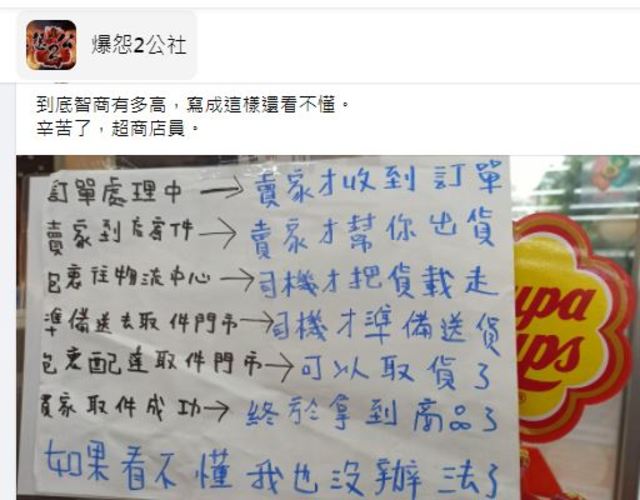 爆怨2公社
到底智商有多高，寫成這樣還看不懂。
辛苦了，超商店員。
訂單處理中→賣家才收到訂單
賣家到店寄件→賣家才幫你出貨
包裹往物流中心→司機才把貨載走
準備送去取件門市→司機才準備送貨
包裹配達取件門市→可以取貨了
買家取件成功→終於拿到商品了
如果看不懂我也沒辦法了
upa
ups